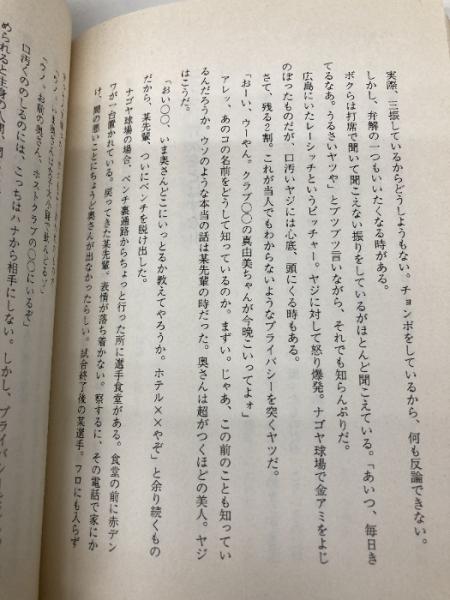 実際、三振しているからどうしようもない。チョンボをしているから、何も反論できない。
しかし、弁解の一つもいいたくなる時がある。
ボクらは打席で聞いて聞こえない振りをしているがほとんど聞こえている。「あいつ、毎日き
てるなあ。うるさいヤツや」とブツブツ言いながら、それでも知らんぷりだ。
広島にいたレーシッチというピッチャー。ヤジに対して怒り爆発。ナゴヤ球場で金アミをよじ
のぼったものだが、口汚いヤジには心底、頭にくる時もある。
さて、残る2割。これが当人でもわからないようなプライバシーを突くヤツだ。
「おーい、ウーやん。クラブ〇〇の真由美ちゃんが今晩こいってよォ」
アレッ、あのコの名前をどうして知っているのか。まずい。じゃあ、この前のことも知ってい
るんだろうか。ウソのような本当の話は某先輩の時だった。奥さんは超がつくほどの美人。ヤジ
はこうだ。
「おい〇〇、いま奥さんどこにいっとるか教えてやろうか。ホテル××やぞ」と余り続くもの
だから、某先輩、ついにベンチを脱け出した。
ナゴヤ球場の場合、ベンチ裏通路からちょっと行った所に選手食堂がある。食堂の前に赤デン
ワが一台置かれている。戻ってきた某先輩。表情が落ち着かない。察するに、その電話で家にか
け、間の悪いことにちょうど奥さんが出なかったらしい。試合終了後の某選手。フロにも入らず
ホストクラブの〇〇にいるぞ」
口汚くののしるのには、こっちはハナから相手にしない。しかし、プライバシー
められると生身の人間